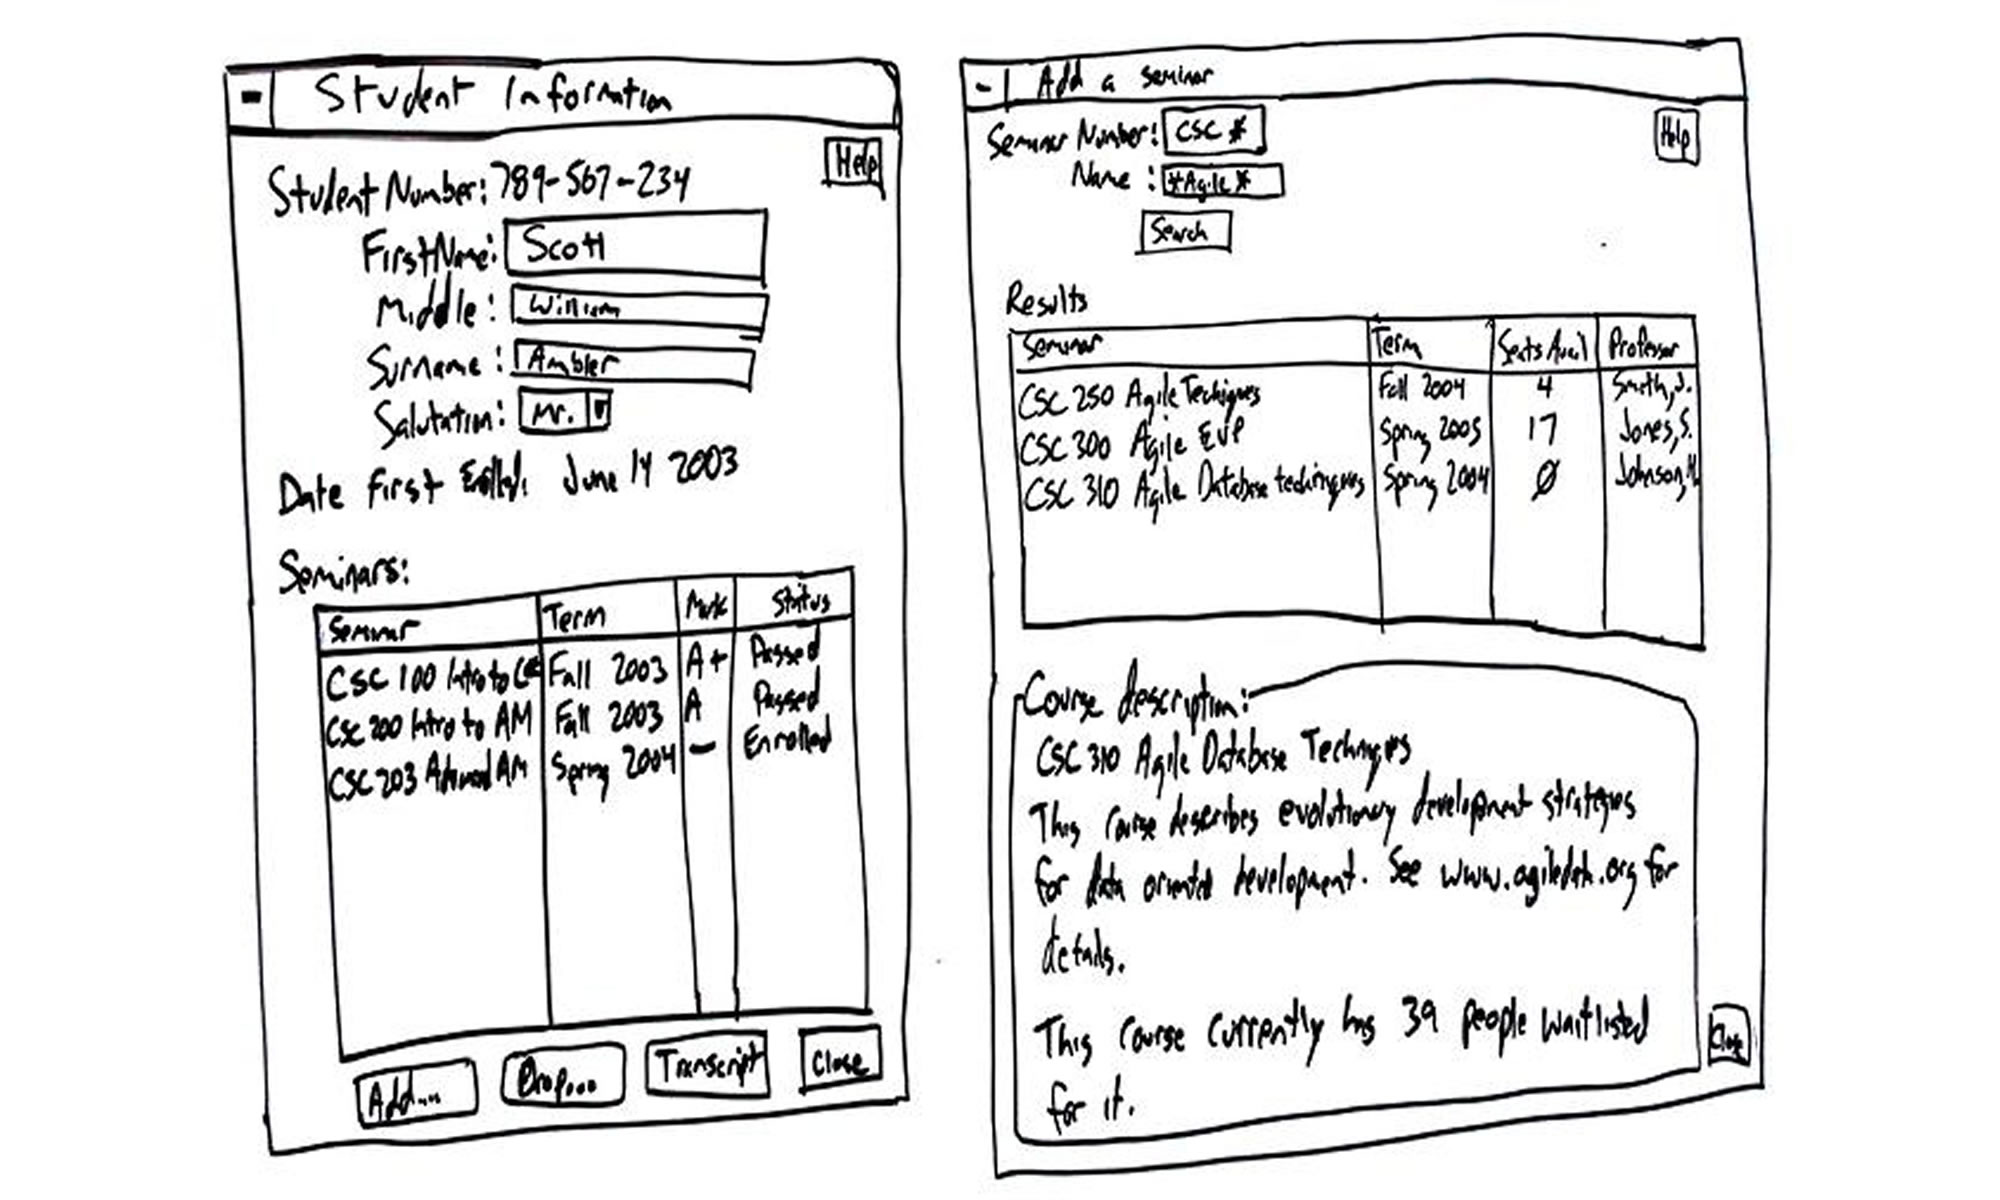 Student Information
Help
Student Number: 789-567-234
First Name: Scott
Middle: William
Surname: Ambler
Salutation: Mr.
Date First June 14 2003
Seminars:
Seminar Term Mark Status
CSC 100 Intro to Fall 2003 A+ Passed
CSC 200 Intro to AM Fall 2003 A Passed
CSC 203 Advanced AM Spring 2004 - Enrolled
Add... Drop... Transcript Close
- Add a seminar
Help
Seminar Number: CSC *
Name: *Agile*
Search
Results
Seminar Term Seats Avail Professor
CSC 250 Agile Techiques Fall 2004 4 Smith, J.
CSC 300 Agile EUP Spring 2005 17 Jones, S.
CSC 310 Agile Database techniques Spring 2004 0 Johnson,
Course description:
CSC 310 Agile Database Techniques
This course describes evolutionary development strategies
for data oriented development. See www.agiledata.org for
details.
This course currently has 39 people waitlisted
for it.
Close